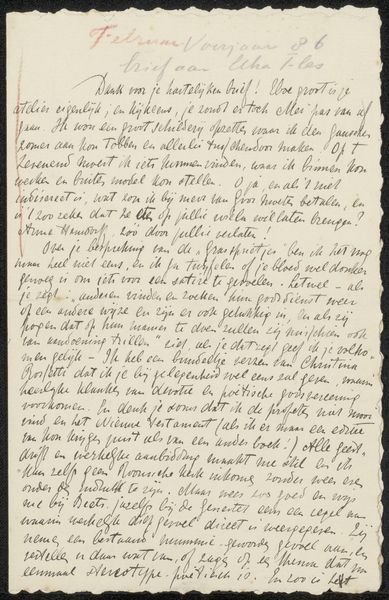 Februari Voorjaar 86
brief aan Cha Fles
Dank voor je hartelijken brief! Hoe groot is je
atelier eigenlijk; en kijkens, je zoudt er toch Mei pas van af
gaan. Ik wou een groot schilderij opzetten waar ik den ganschen
zomer aan kon tobben en allerlei tusschendoor maken. Op 't
zou moest ik iets kunnen vinden, waar ik binnen kon
werken en buiten model kon stellen. O ja, en als 't niet
indiscreet is, wat zou ik bij mevr van Gooi moeten betalen, en
is 't zoo zeker dat ze eten op jullie weeln wil laten brengen?
Arme Hamdorff, zoo door jullie verlaten!
Over je bespreking van de "Grassprietjes" ben ik het nog
maar heel niet eens, en ik ga twijfelen of je bloed wel donker
genoeg is om iets voor een satire te gevoelen. Let wel – als
je zegt "anderen vinden en zoeken hun godsdienst weer
op een andere wijze en zijn er ook gelukkig in, en als zij
pogen dat op hun manier te doen zullen zij misschien ook
van aandoening trillen" ziet, als je dat zegt geef ik je volko-
men gelijk – Ik heb een bundeltje verzen van Christina
Rossetti dat ik je bij gelegenheid wel eens zal geven, waarin
heerlijke klanken van devotie en poëtische godsvereering
voorkomen. En denk je soms dat ik de profeten niet mooi
vind, en het Nieuwe Testament (als ik er maar een editie
van kon krijgen juist als van een ander boek!) Alle geest-
drift en werkelijke aanbidding maakt me stil en ik
kan zelfs geen Roomsche kerk inkomen zonder weer even
onder den indruk te zijn. Maar wees zoo goed en wijs
me bij Beets, jazelfs bij de Genestet eens een regel aan
waarin werkelijk diep gevoel direct is weergegeven. Zij
nemen een bestaand mummie-geworden gevoel aan, en
vertellen u daar wat van, of zagen op een thema dat nu
eenmaal stereotype-poëtisch is. En zoo is het